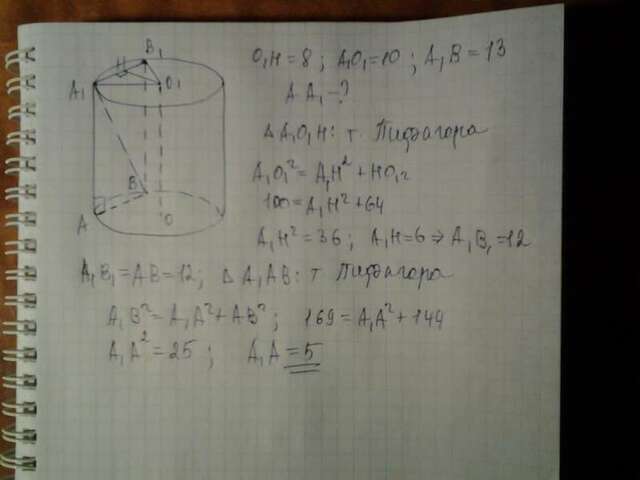 O₁H = 8 ; A₁O₁ = 10 ; A₁B = 13
AA₁ - ?
Δ A₁O₁H : т. Пифагора
A₁O₁² = A₁H² + HO₁²
100 = A₁H² + 64
A₁H² = 36 ; A₁H = 6 ⇒ A₁B₁ = 12
A₁B₁ = AB = 12 ; Δ A₁AB : т. Пифагора
A₁B² = A₁A² + AB² ; 169 = A₁A² + 144
A₁A² = 25 ; A₁A = 5
B₁
H
A₁
O₁
B
A
O